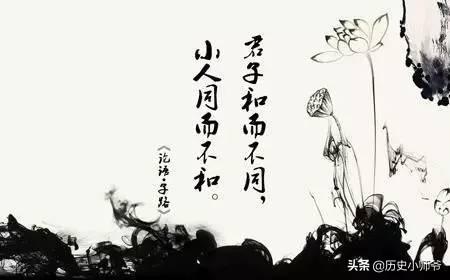 君子和而不同,
小人同而不和。
《论语·子路》
头条@历史小师爷